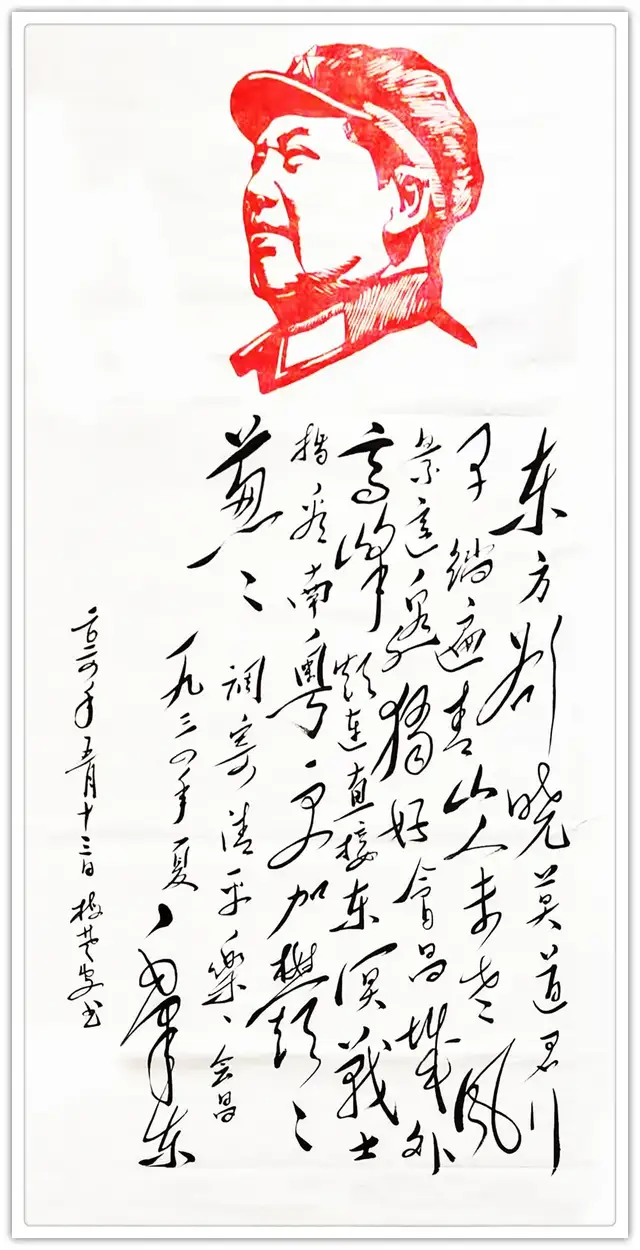 东方欲晓莫道君行
早踏遍青山人未老风
景這邊獨好會昌城外
高峰颠连直接东溟戰士
指看南粤更加鬱々
葱々
调寄清平樂会昌
一九三四年夏毛泽东
二〇二四年五月十三日梅书